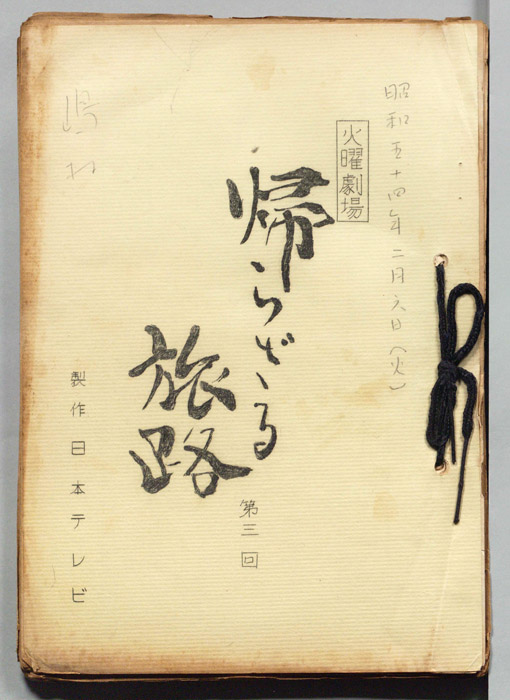 昭和五十四年二月六日(火)
火曜劇場
帰らざる
旅路
第三回
製作日本テレビ